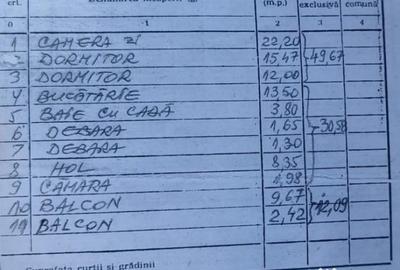 crt. Denumirea încăperii (m.p.) exclusivă comună
0 1 2 3 4
1 CAMERA ZI 22,20
2 DORMITOR 15,47 49,67
3 DORMITOR 12,00
4 BUCĂTĂRIE 13,50
5 BAIE CU CADĂ 3,80
6 DEBARA 1,65 30,58
7 DEBARA 1,30
8 HOL 8,35
9 CAMARA 1,98
10 BALCON 9,67 12,09
11 BALCON 2,42
Suprafața curții și grădinii